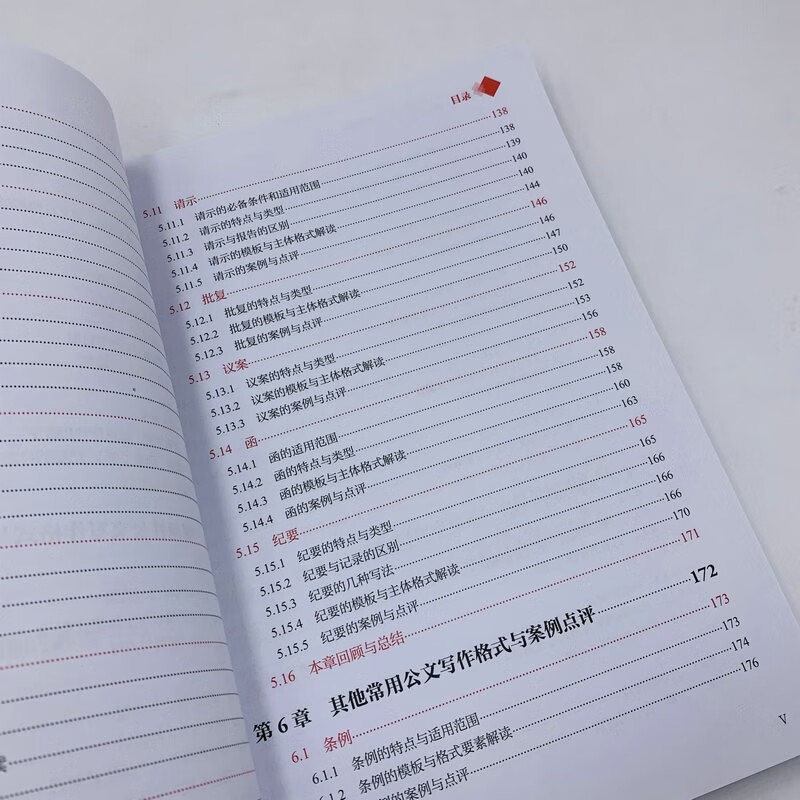 目录
5.11 请示 138
5.11.1 请示的必备条件和适用范围 138
5.11.2 请示的特点与类型 139
5.11.3 请示与报告的区别 140
5.11.4 请示的模板与主体格式解读 140
5.11.5 请示的案例与点评 144
5.12 批复 146
5.12.1 批复的特点与类型 146
5.12.2 批复的模板与主体格式解读 147
5.12.3 批复的案例与点评 150
5.13 议案 152
5.13.1 议案的特点与类型 152
5.13.2 议案的模板与主体格式解读 153
5.13.3 议案的案例与点评 156
5.14 函 158
5.14.1 函的适用范围 158
5.14.2 函的特点与类型 158
5.14.3 函的模板与主体格式解读 160
5.14.4 函的案例与点评 163
5.15 纪要 165
5.15.1 纪要的特点与类型 165
5.15.2 纪要与记录的区别 166
5.15.3 纪要的几种写法 166
5.15.4 纪要的模板与主体格式解读 166
5.15.5 纪要的案例与点评 170
5.16 本章回顾与总结 171
第 6 章 其他常用公文写作格式与案例点评 172
6.1 条例 173
6.1.1 条例的特点与适用范围 173
6.1.2 条例的模板与格式要素解读 174
条例的案例与点评 176
V